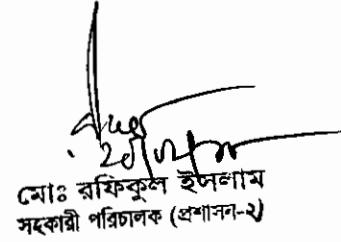 মোঃ রফিকুল ইসলাম
সহকারী পরিচালক (প্রশাসন-২)